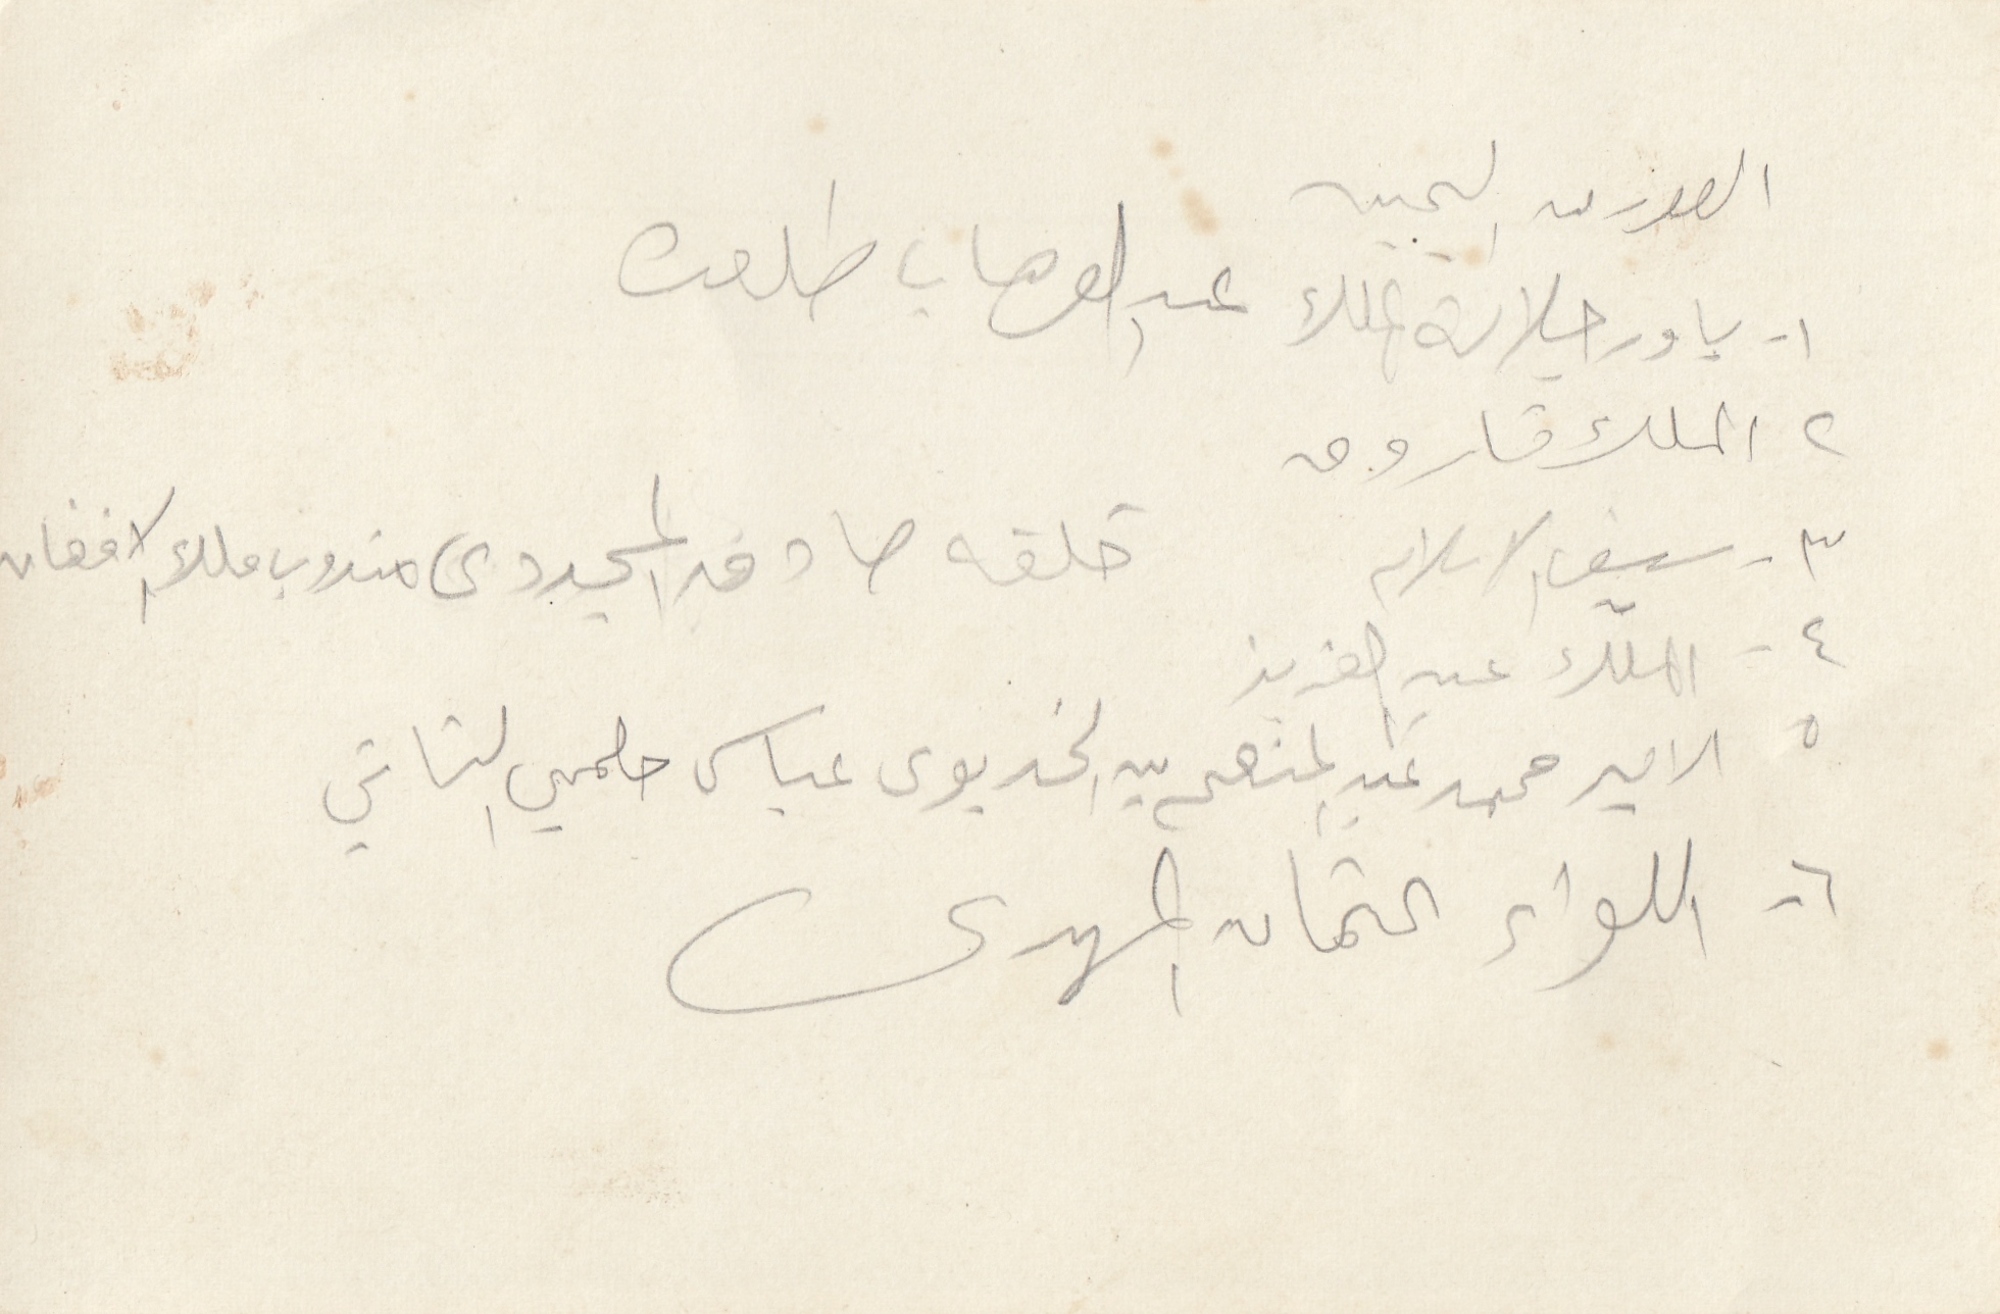 الصور من اليمين
١- ياور جلالة الملك عبد الوهاب طلعت
٢ الملك فاروق
٣- سيف الاسلام خلفه صادق المجددى مندوب ملك الافغان
٤- الملك عبد العزيز
٥ الامير محمد عبد المنعم بن الخديوى عباس حلمي الثاني
٦- اللواء عثمان المهدى